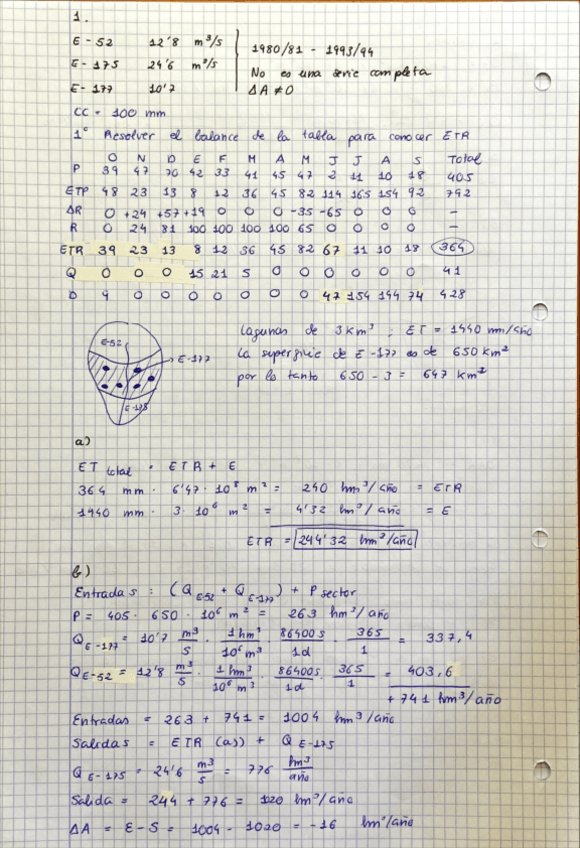 1.
E - 52 12'8 m³/s
E - 175 24'6 m³/s
E - 177 10'7
1980/81 - 1993/94
No es una serie completa
ΔA ≠ 0
CC = 100 mm
1° Resolver el balance de la tabla para conocer ETR
O N D E F M A M J J A S Total
P 39 47 70 42 33 41 45 47 2 11 10 18 405
ETP 48 23 13 8 12 36 45 82 114 165 154 92 792
ΔR 0 +24 +57 +19 0 0 0 -35 -65 0 0 0 -
R 0 24 81 100 100 100 100 65 0 0 0 0 -
ETR 39 23 13 8 12 36 45 82 67 11 10 18 364
Q 0 0 0 15 21 5 0 0 0 0 0 0 41
D 9 0 0 0 0 0 0 0 47 154 144 74 428
E-52
E-177
E-175
lagunas de 3 km³ ; ET = 1440 mm/año
la superficie de E-177 es de 650 km²
por lo tanto 650 - 3 = 647 km²
a)
ET total = ETR + E
364 mm · 6'47 · 10⁸ m² = 240 hm³/año = ETR
1440 mm · 3 · 10⁶ m² = 4'32 hm³/año = E
ETR = 244'32 hm³/año
b)
Entradas : (Q E-52 + Q E-177) + P sector
P = 405 · 650 · 10⁶ m² = 263 hm³/año
Q E-177 = 10'7 m³/s · 1 hm³/10⁶ m³ · 86400 s/1d · 365/1 = 337,4
Q E-52 = 12'8 m³/s · 1 hm³/10⁶ m³ · 86400s/1d · 365/1 = 403,6
+ 741 hm³/año
Entradas = 263 + 741 = 1004 hm³/año
Salidas = ETR (as) + Q E-175
Q E-175 = 24'6 m³/s = 776 hm³/año
Salida = 244 + 776 = 1020 hm³/año
ΔA = E - S = 1004 - 1020 = -16 hm³/año